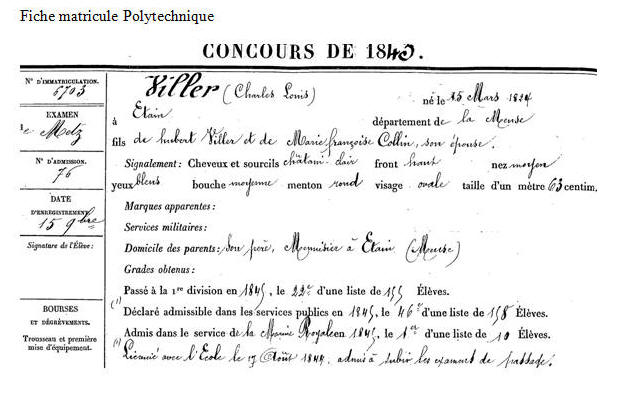 Fiche matricule Polytechnique
CONCOURS DE 1843.
N° D'IMMATRICULATION.
6703
EXAMEN
de Metz
N° D'ADMISSION.
76
DATE
D'ENREGISTREMENT.
15 9bre
Signature de l'Élève :
BOURSES
ET DÉGRÈVEMENTS.
Trousseau et première
mise d'équipement.
Viller (Charles Louis) né le 15 Mars 1824
à Etain département de la Meuse
fils de hubert Viller et de Marie françoise Collin, son épouse.
Signalement : Cheveux et sourcils châtain-clair front haut nez moyen
yeux bleus bouche moyenne menton rond visage ovale taille d'un mètre 63 centim.
Marques apparentes :
Services militaires :
Domicile des parents : Son père, Menuisier à Etain (Meuse)
Grades obtenus :
Passé à la 1re division en 1845, le 22e d'une liste de 155 Élèves.
(1) Déclaré admissible dans les services publics en 1845, le 46e d'une liste de 158 Élèves.
Admis dans le service de la Marine Royale en 1845, le 1er d'une liste de 10 Élèves.
(1) Licencié avec l'Ecole le 17 Août 1844, admis à subir les examens de passage.